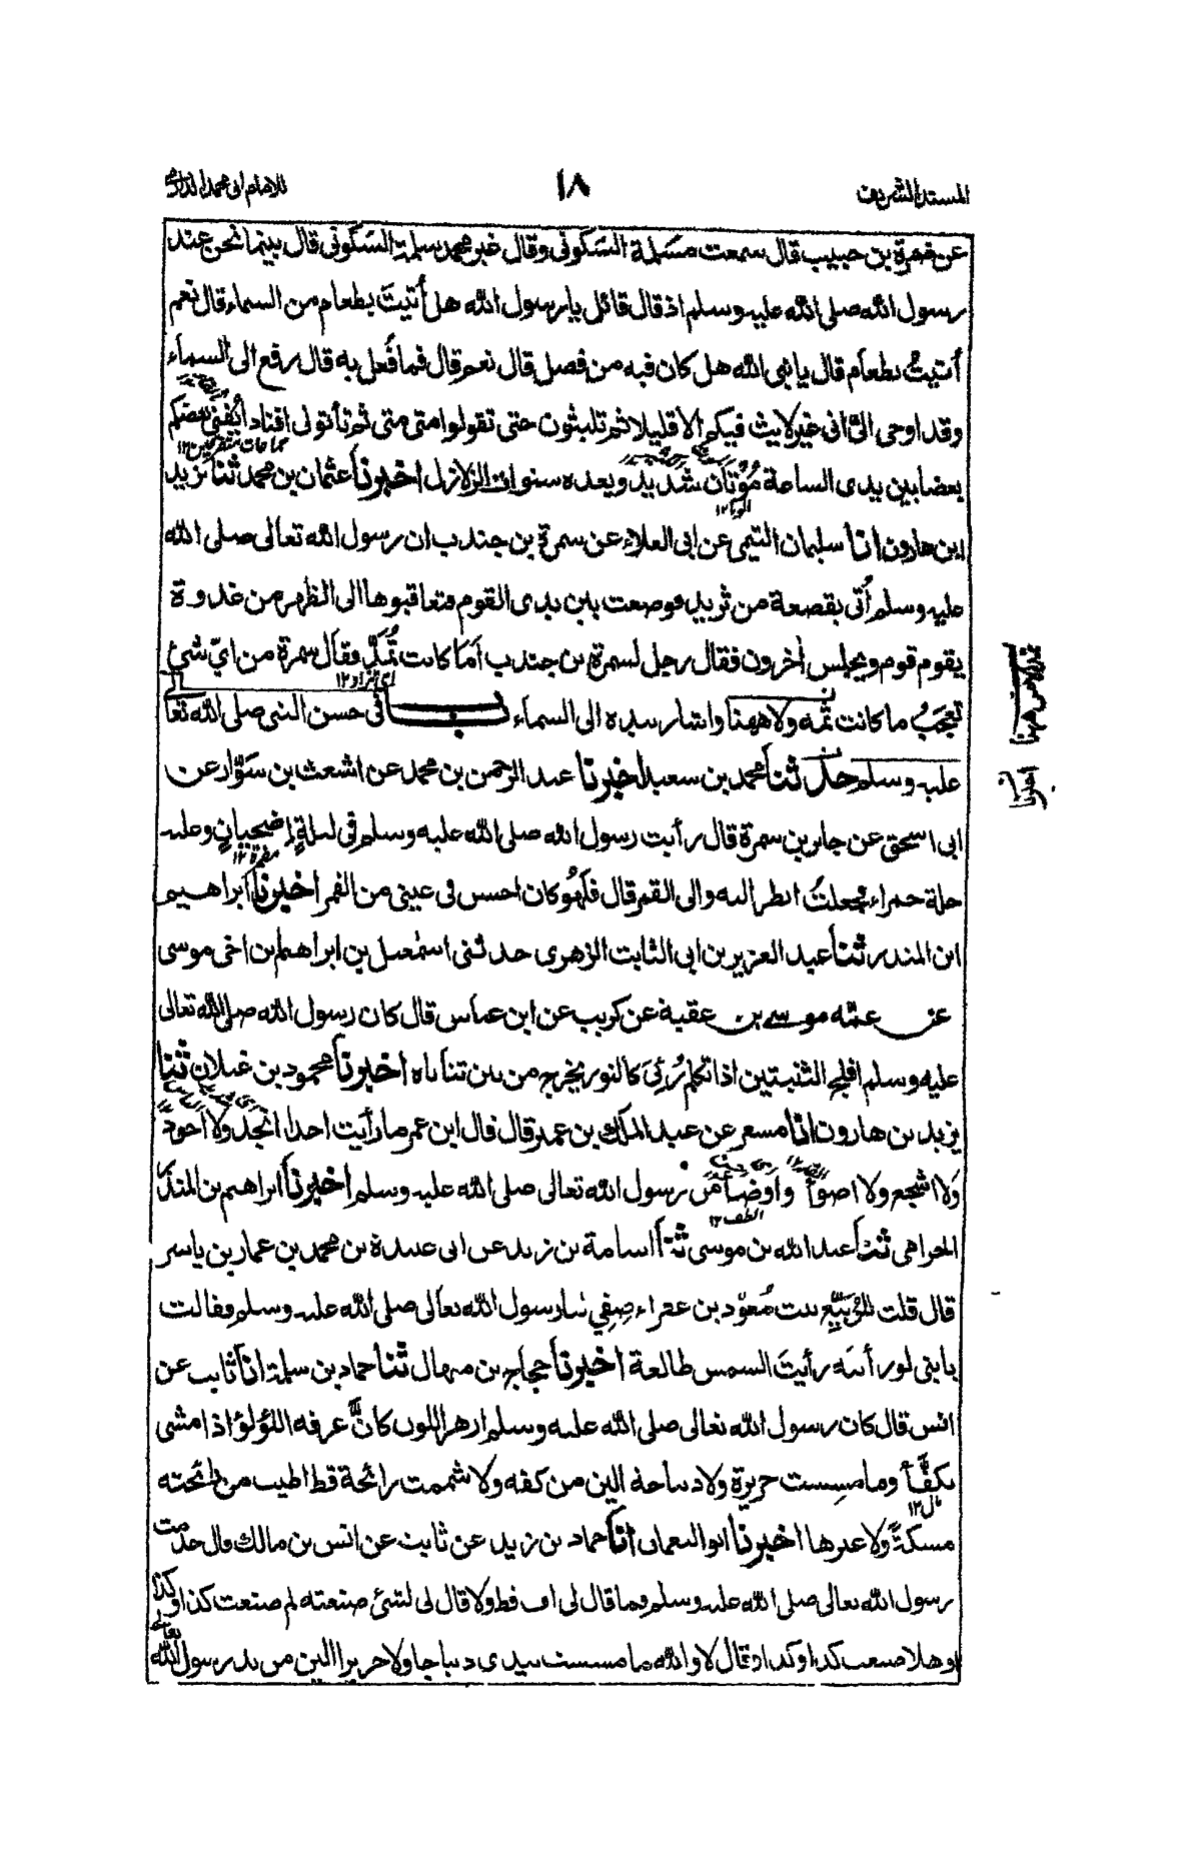 المسند الشريف ١٨ للامام ابى محمد الدارمى
عن ضمرة بن حبيب قال سمعت مسلمة السكونى وقال غير محمد سلمة السكونى قال بينما نحن عند
رسول الله صلى الله عليه وسلم اذ قال قائل يا رسول الله هل أتيتَ بطعام من السماء قال نعم
أتيتُ بطعام قال يا نبى الله هل كان فيه من فضل قال نعم قال فما فُعل به قال رفع الى السماء
وقد اوحى الىّ انى غير لابث فيكم الا قليلا ثم تلبثون حتى تقولوا متى متى ثم تأتونى افنادا يُفنى بعضكم
جماعات متفرقين ١٢
بعضا بين يدى الساعة مُوْتَان شديد وبعده سنوات الزلازل اخبرنا عثمان بن محمد ثنا يزيد
الوباء ١٢
ابن هارون انا سليمان التيمى عن ابى العلاء عن سمرة بن جندب ان رسول الله تعالى صلى الله
عليه وسلم اُتى بقصعة من ثريد فوضعت بين يدى القوم فتعاقبوها الى الظهر من غدوة
يقوم قوم ويجلس اخرون فقال رجل لسمرة بن جندب أما كانت تُمَدُّ فقال سمرة من اىّ شئ
اى تزاد ١٢
تعجبُ ما كانت تمد ولا ههنا واشار بيده الى السماء باب فى حسن النبى صلى الله تعالى
عليه وسلم حدثنا محمد بن سعيد اخبرنا عبد الرحمن بن محمد عن اشعث بن سَوّار عن
ابى اسحق عن جابر بن سمرة قال رأيت رسول الله صلى الله عليه وسلم فى ليلةٍ إضحيانٍ وعليه
مقمرة ١٢
حلة حمراء فجعلتُ انظر اليه والى القمر قال فلَهُو كان احسن فى عينى من القمر اخبرنا ابراهيم
ابن المنذر ثنا عبد العزيز بن ابى الثابت الزهرى حدثنى اسمعيل بن ابراهيم بن اخى موسى
عن عمّه موسى بن عقبة عن كريب عن ابن عباس قال كان رسول الله صلى الله تعالى
عليه وسلم افلج الثنيتين اذا تكلم رُئِىَ كالنور يخرج من بين ثناياه اخبرنا محمود بن غيلان ثنا
يزيد بن هارون انا مسعر عن عبد الملك بن عمير قال قال ابن عمر ما رأيت احدا انجد ولا اجود
ولا اشجع ولا اضوأ وأوضأ من رسول الله تعالى صلى الله عليه وسلم اخبرنا ابراهيم بن المنذر
الحزامى ثنا عبد الله بن موسى ثنا اسامة بن زيد عن ابى عبيدة بن محمد بن عمار بن ياسر
قال قلت للرُّبَيّع بنت مُعوّد بن عفراء صِفِي لنا رسول الله تعالى صلى الله عليه وسلم فقالت
يا بنى لو رأيته رأيتَ الشمس طالعة اخبرنا حجاج بن منهال ثنا حماد بن سلمة انا ثابت عن
انس قال كان رسول الله تعالى صلى الله عليه وسلم ازهر اللون كانّ عرقه اللؤلؤ اذا مشى
تكفّأ وما مسِست حريرة ولا ديباجة الين من كفه ولا شممت رائحة قط اطيب من رائحته
مال ١٢
مسكةً ولا غيرها اخبرنا ابو النعمان انا حماد بن زيد عن ثابت عن انس بن مالك قال خدمت
رسول الله تعالى صلى الله عليه وسلم فما قال لى اف قط ولا قال لى لشئ صنعته لم صنعت كذا وكذا
او هلا صنعت كذا وكذا وقال لا والله ما مسست بيدى ديباجا ولا حريرا الين من يد رسول الله
تعالى
اخبرنا